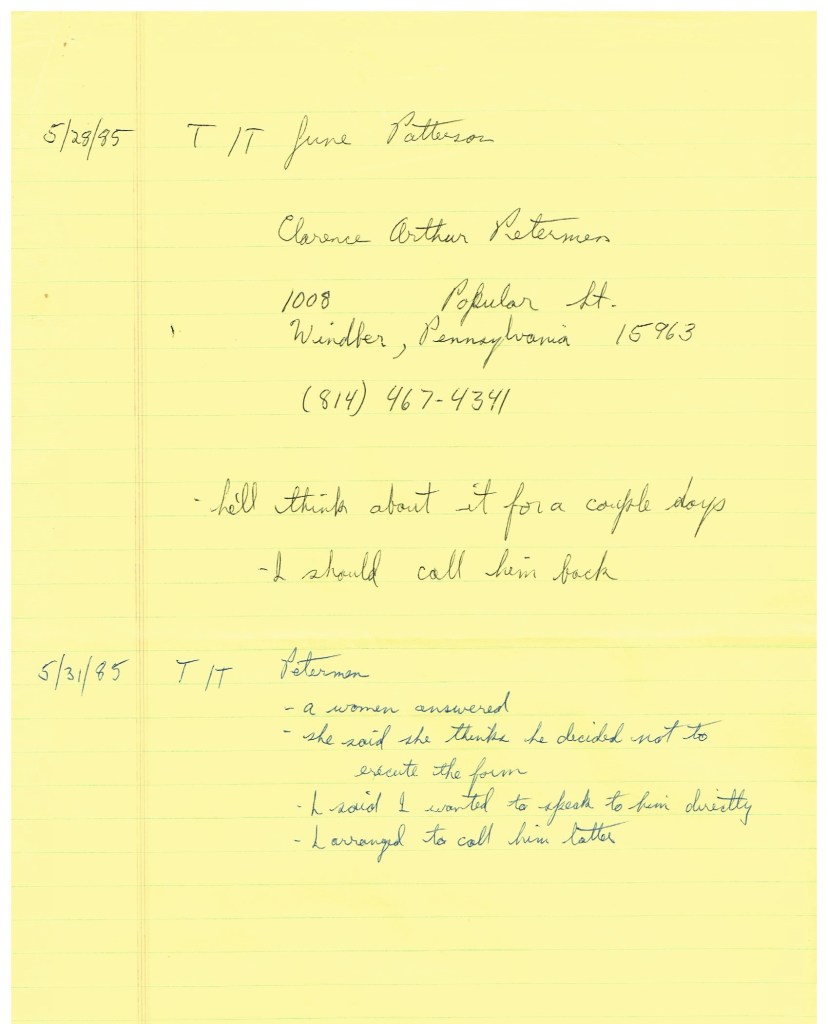 5/28/85 T/T June Patterson
Clarence Arthur Petermen
1008 Popular St.
Windber, Pennsylvania 15963
(814) 467-4341
- he'll think about it for a couple days
- I should call him back
5/31/85 T/T Petermen
- a women answered
- she said she thinks he decided not to
execute the form
- I said I wanted to speak to him directly
- I arranged to call him latter